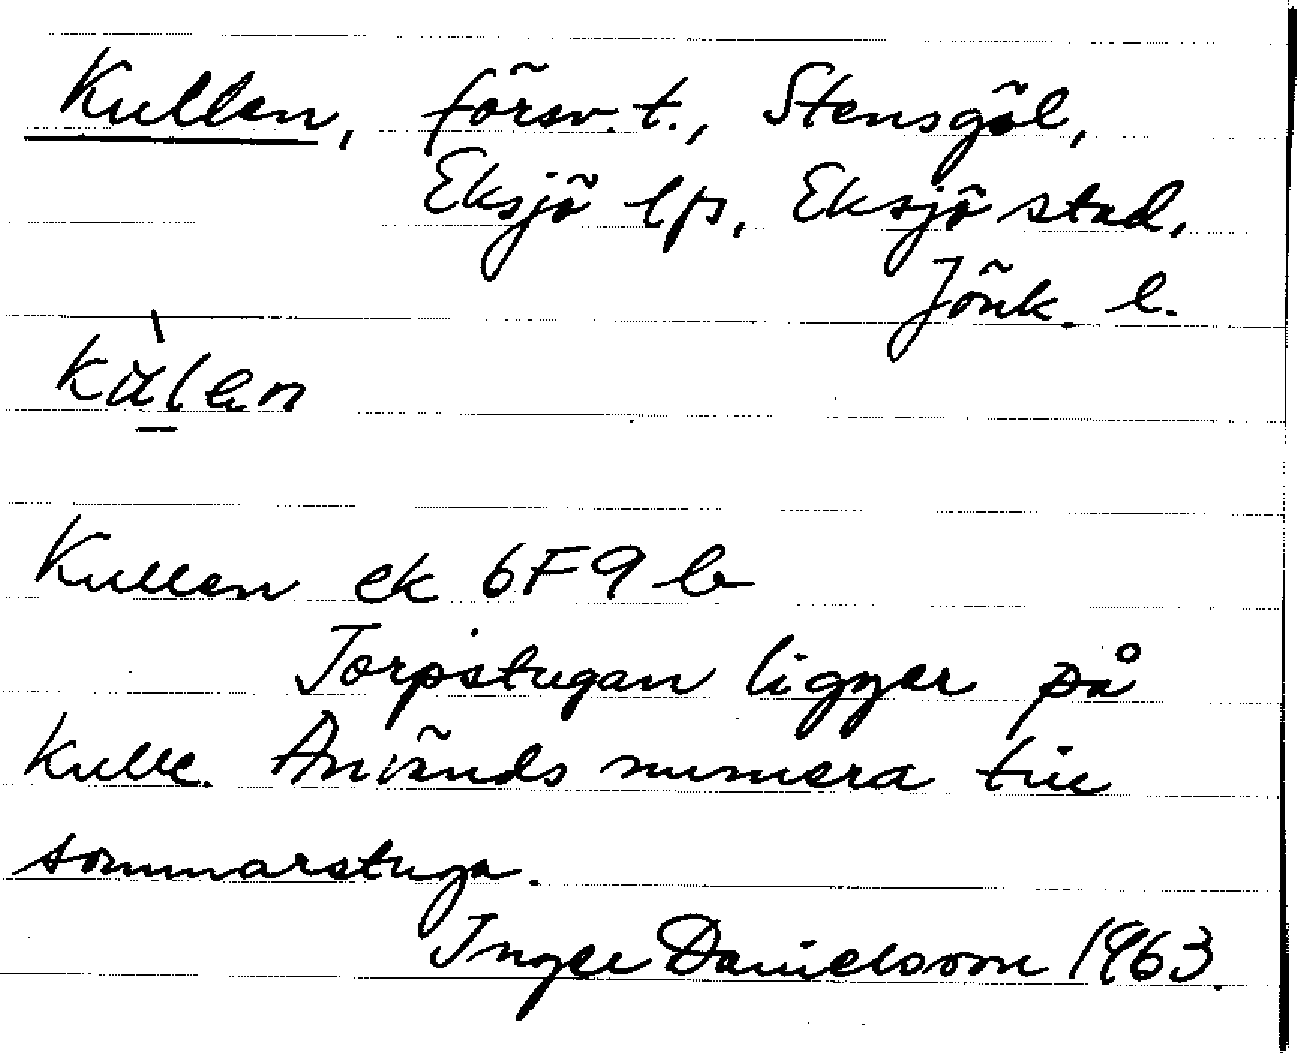 Kullen, försv. t., Stensgöl,
Eksjö lfs, Eksjö stad,
Jönk. l.
Kullen ek 6F9b
Torpstugan ligger på
kulle. Används numera till
sommarstuga.
Inger Danielsson 1963.